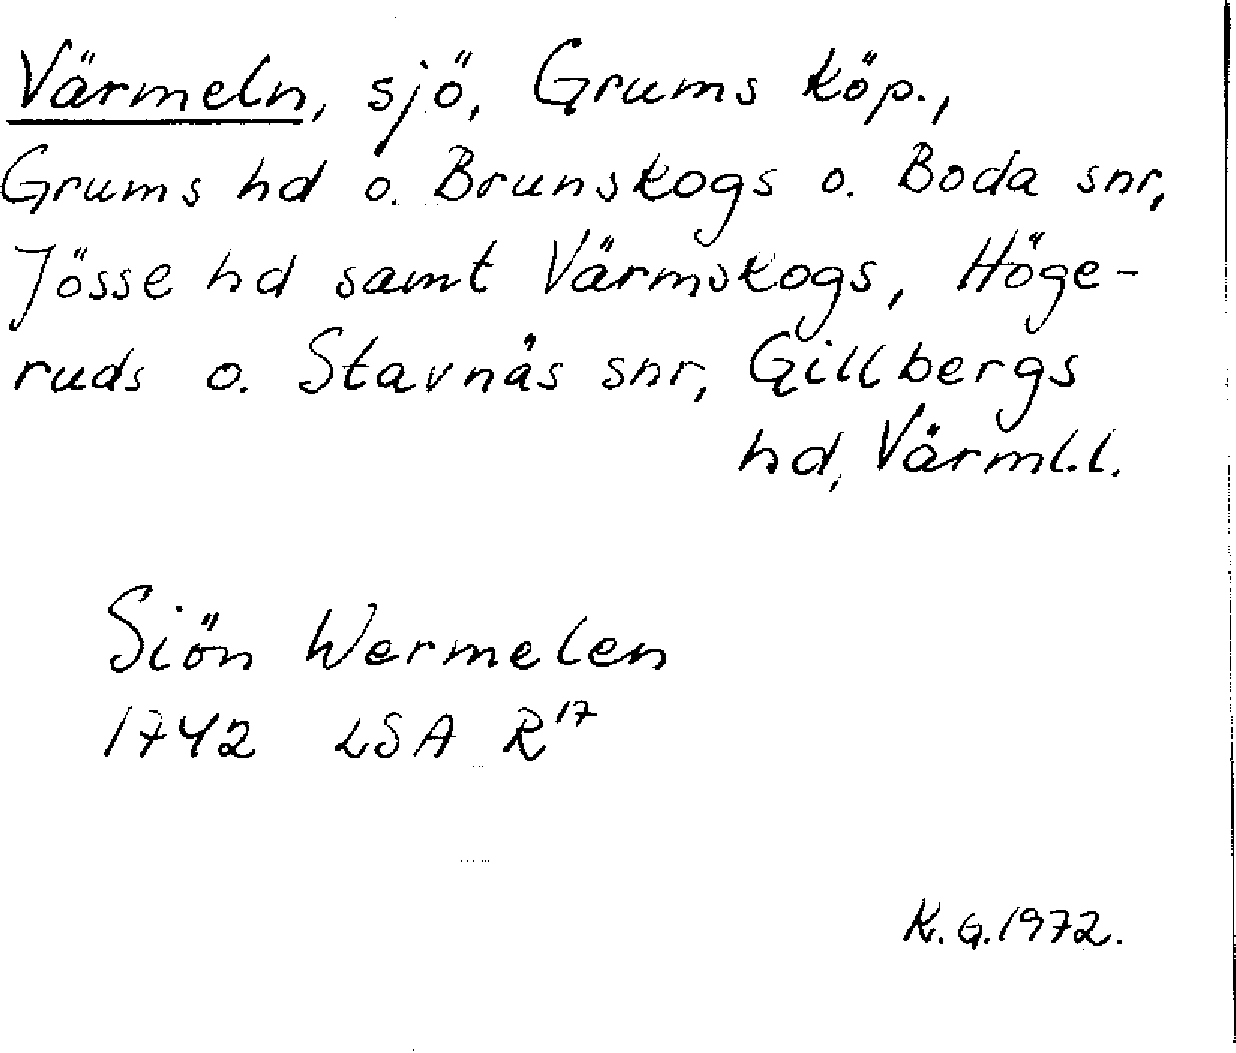 Värmeln, sjö, Grums köp.,
Grums hd o. Brunskogs o. Boda snr,
Jösse hd samt Värmskogs, Höge-
ruds o. Stavnäs snr, Gillbergs
hd, Värml.l.
Siön Wermelen
1742 LSA R17
K.G.1972.